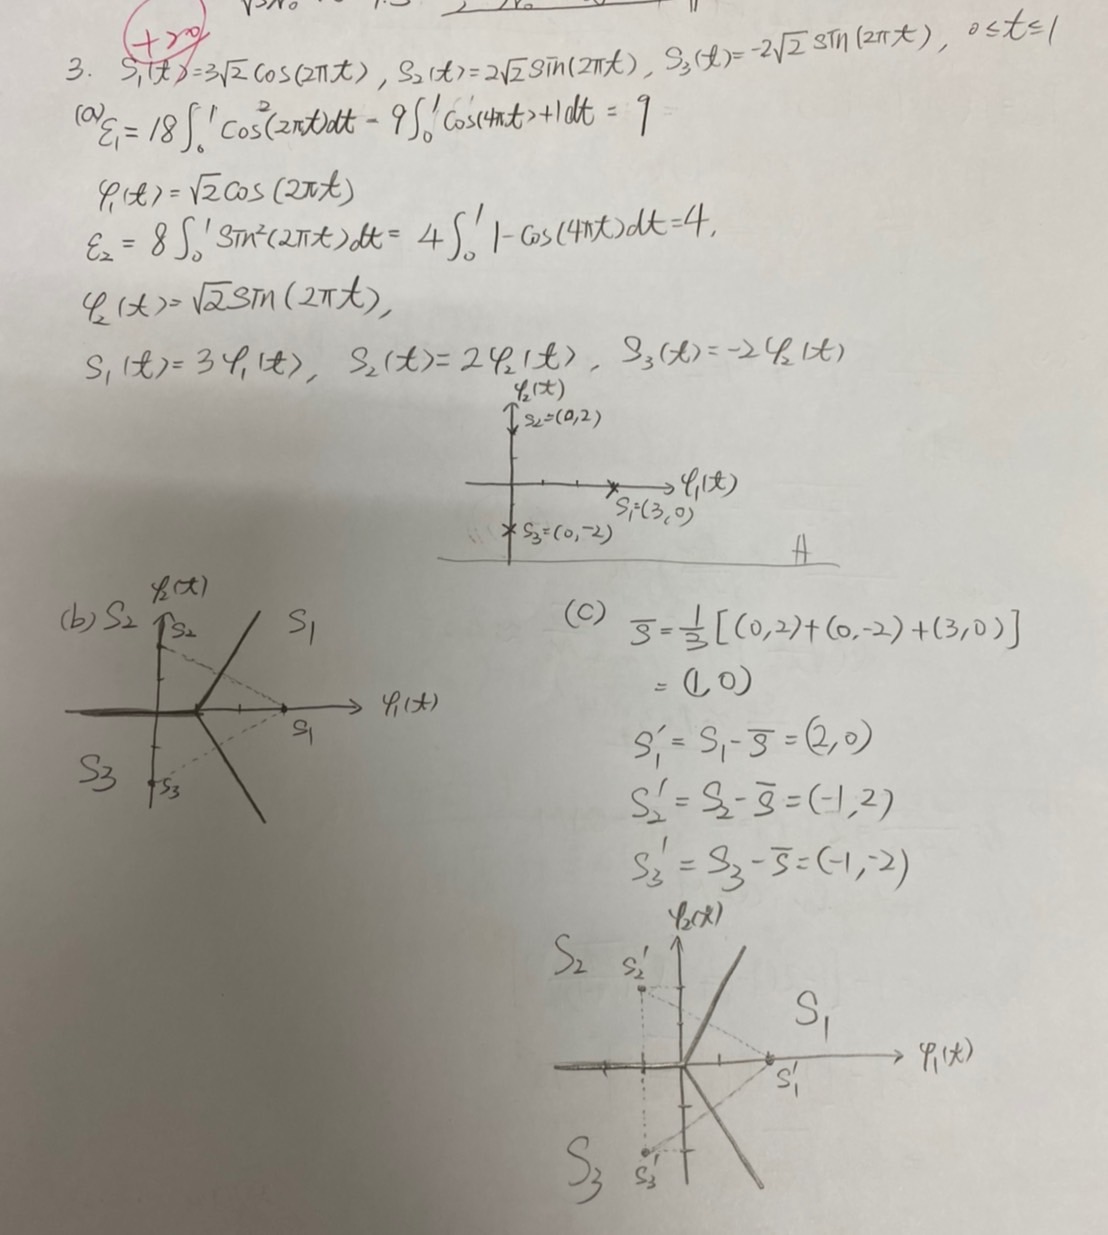 +20
3. S₁(t)=3√2 cos(2πt), S₂(t)=2√2 sin(2πt), S₃(t)=-2√2 sin(2πt), 0≤t≤1
(a) ε₁ = 18∫₀¹ cos²(2πt)dt = 9∫₀¹ cos(4πt)+1dt = 9
φ₁(t)=√2 cos(2πt)
ε₂ = 8∫₀¹ sin²(2πt)dt = 4∫₀¹ 1-cos(4πt)dt=4,
φ₂(t)=√2 sin(2πt),
S₁(t)=3φ₁(t), S₂(t)=2φ₂(t), S₃(t)=-2φ₂(t)
φ₂(t)
S₂=(0,2)
φ₁(t)
S₁=(3,0)
S₃=(0,-2)
(b) S₂
φ₂(t)
S₂
S₁
φ₁(t)
S₁
S₃
S₃
(c) S̄ = 1/3 [(0,2)+(0,-2)+(3,0)]
= (1,0)
S₁' = S₁-S̄ = (2,0)
S₂' = S₂-S̄ = (-1,2)
S₃' = S₃-S̄ = (-1,-2)
φ₂(t)
S₂
S₂'
S₁
φ₁(t)
S₁'
S₃
S₃'